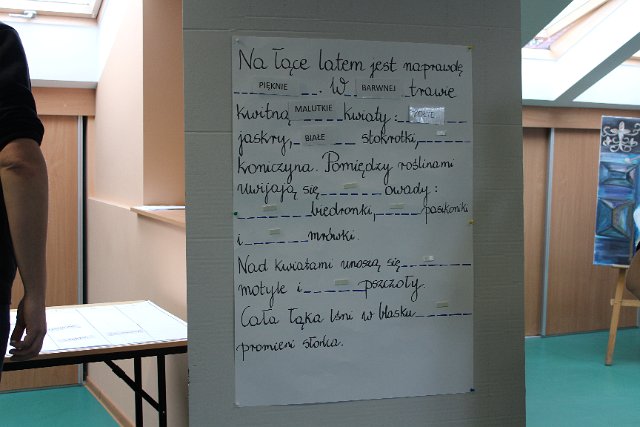 Na łące latem jest naprawdę
PIĘKNIE. W BARWNEJ trawie
kwitną MALUTKIE kwiaty:
jaskry, BIAŁE stokrotki,
koniczyna. Pomiędzy roślinami
uwijają się owady:
biedronki, pasikoniki
i mrówki.
Nad kwiatami unoszą się
motyle i pszczoły.
Cała łąka lśni w blasku
promieni słońca.